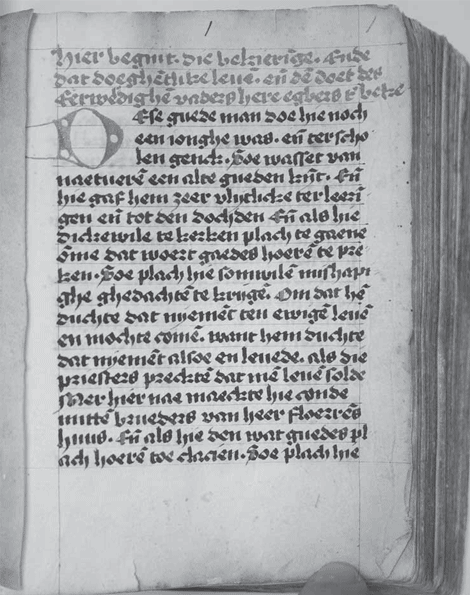 1
hier begint. die bekierīge. Ende
dat doeghētlike leuē. eñ dē doet des
Eerwēdighē vaders here egberts tē beke
DEse guede man doe hie noch
een ionghe was. eñ ter scho
len genck. Soe wasset van
naetuerē een alte gueden kīnt. Eñ
hie gaf hem zeer vlyticke ter leerī
gen eñ tot den dochden Eñ als hie
dickewile te kerken plach te gaene
ōme dat woert gaedes hoerē te pre
ken. Soe plach hie somwilē mishapē
ghe ghedachtē te krigē. Om dat hē
duchte dat niemēt ten ewigē leuē
en mochte comē. want hem duchte
dat niemēt alsoe en leuede. als die
priesters precktē dat mē leuē solde
Mer hier nae maeckte hie conde
mittē brueders van heer floerēs
huus. Eñ als hie den wat guedes pl
ach hoerē toe clacien. Soe plach hie